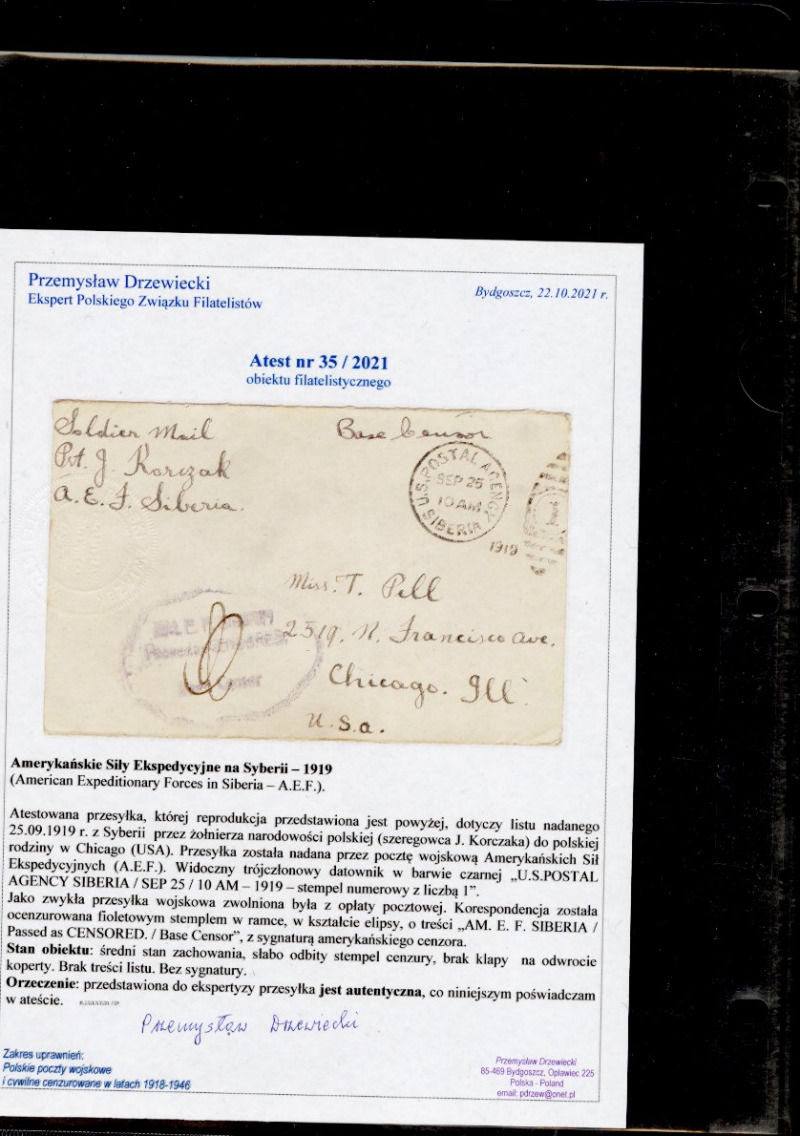 Przemysław Drzewiecki
Ekspert Polskiego Związku Filatelistów
Bydgoszcz, 22.10.2021 r.
Atest nr 35 / 2021
obiektu filatelistycznego
Soldier Mail
Base Censor
Pvt. J. Korczak
A. E. F. Siberia.
U.S. POSTAL AGENCY
SEP 25
10 AM
SIBERIA
1919
1
Miss. T. Pell
2519. N. Francisco ave.
Chicago. Ill.
U.S.a.
Amerykańskie Siły Ekspedycyjne na Syberii – 1919
(American Expeditionary Forces in Siberia – A.E.F.).
Atestowana przesyłka, której reprodukcja przedstawiona jest powyżej, dotyczy listu nadanego
25.09.1919 r. z Syberii przez żołnierza narodowości polskiej (szeregowca J. Korczaka) do polskiej
rodziny w Chicago (USA). Przesyłka została nadana przez pocztę wojskową Amerykańskich Sił
Ekspedycyjnych (A.E.F.). Widoczny trójczłonowy datownik w barwie czarnej „U.S.POSTAL
AGENCY SIBERIA / SEP 25 / 10 AM – 1919 – stempel numerowy z liczbą 1”.
Jako zwykła przesyłka wojskowa zwolniona była z opłaty pocztowej. Korespondencja została
ocenzurowana fioletowym stemplem w ramce, w kształcie elipsy, o treści „AM. E. F. SIBERIA /
Passed as CENSORED. / Base Censor”, z sygnaturą amerykańskiego cenzora.
Stan obiektu: średni stan zachowania, słabo odbity stempel cenzury, brak klapy na odwrocie
koperty. Brak treści listu. Bez sygnatury.
Orzeczenie: przedstawiona do ekspertyzy przesyłka jest autentyczna, co niniejszym poświadczam
w ateście.
Przemysław Drzewiecki
Zakres uprawnień:
Polskie poczty wojskowe
i cywilne cenzurowane w latach 1918-1946
Przemysław Drzewiecki
85-469 Bydgoszcz, Opławiec 225
Polska - Poland
email: pdrzew@onet.pl